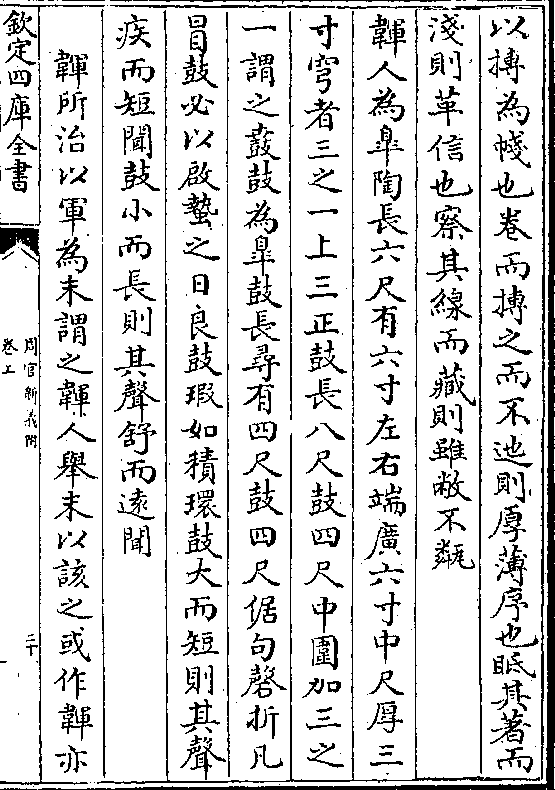 以摶為帴也卷而摶之而不迆則厚薄序也眡其著而
淺則革信也察其線而藏則雖敝不甐
韗人為臯陶長六尺有六寸左右端廣六寸中尺厚三
寸穹者三之一上三正鼓長八尺鼓四尺中圍加三之
一謂之鼖鼓為臯鼓長尋有四尺鼓四尺倨句磬折凡
冒鼓必以啟蟄之日良鼓瑕如積環鼓大而短則其聲
疾而短聞鼓小而長則其聲舒而遠聞
韗所治以軍為末謂之韗人舉末以該之或作韗亦
欽定四庫全書
周官新義附
卷上
三十